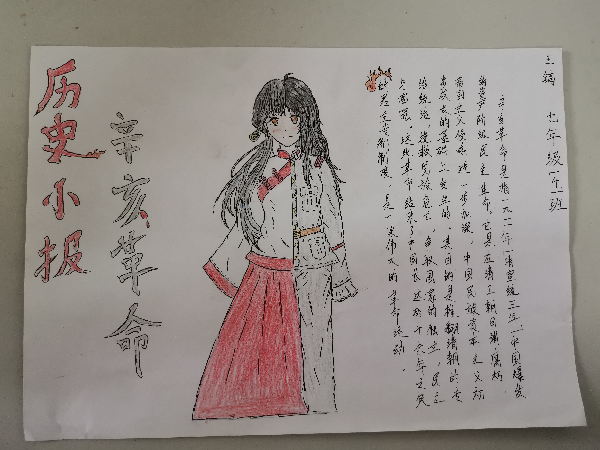 历史小报
辛亥革命
七年级
辛亥革命是指一九一一年(清宣统三年)中国爆发
的资产阶级民主革命。它是在清王朝日渐腐朽、
帝国主义侵略进一步加深、中国民族资本主义初
步成长的基础上发生的。其目的是推翻清朝的专
制统治,挽救民族危亡,争取国家的独立、民主
和富强。这次革命结束了中国长达 千年之久
的君主专制制度,是一次伟大的革命运动。